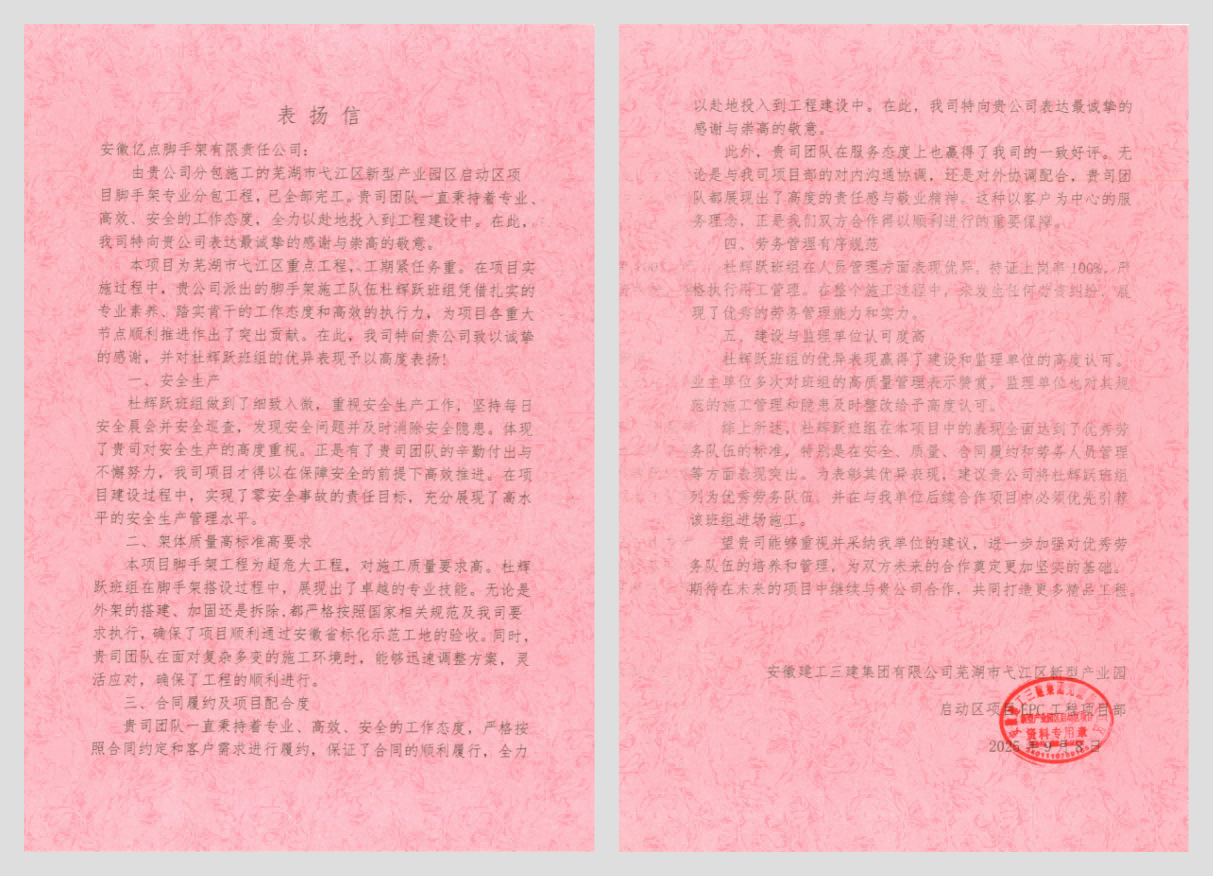 表 扬 信
安徽亿点脚手架有限责任公司：
由贵公司分包施工的芜湖市弋江区新型产业园区启动区项
目脚手架专业分包工程，已全部完工。贵司团队一直秉持着专业、
高效、安全的工作态度，全力以赴地投入到工程建设中。在此，
我司特向贵公司表达最诚挚的感谢与崇高的敬意。
本项目为芜湖市弋江区重点工程，工期紧任务重。在项目实
施过程中，贵公司派出的脚手架施工队伍杜辉跃班组凭借扎实的
专业素养、踏实肯干的工作态度和高效的执行力，为项目各重大
节点顺利推进作出了突出贡献。在此，我司特向贵公司致以诚挚
的感谢，并对杜辉跃班组的优异表现予以高度表扬！
一、安全生产
杜辉跃班组做到了细致入微，重视安全生产工作，坚持每日
安全晨会并安全巡查，发现安全问题并及时消除安全隐患。体现
了贵司对安全生产的高度重视。正是有了贵司团队的辛勤付出与
不懈努力，我司项目才得以在保障安全的前提下高效推进。在项
目建设过程中，实现了零安全事故的责任目标，充分展现了高水
平的安全生产管理水平。
二、架体质量高标准高要求
本项目脚手架工程为超危大工程，对施工质量要求高。杜辉
跃班组在脚手架搭设过程中，展现出了卓越的专业技能。无论是
外架的搭建、加固还是拆除，都严格按照国家相关规范及我司要
求执行，确保了项目顺利通过安徽省标化示范工地的验收。同时，
贵司团队在面对复杂多变的施工环境时，能够迅速调整方案，灵
活应对，确保了工程的顺利进行。
三、合同履约及项目配合度
贵司团队一直秉持着专业、高效、安全的工作态度，严格按
照合同约定和客户需求进行履约，保证了合同的顺利履行，全力
以赴地投入到工程建设中。在此，我司特向贵公司表达最诚挚的
感谢与崇高的敬意。
此外，贵司团队在服务态度上也赢得了我司的一致好评。无
论是与我司项目部的对内沟通协调，还是对外协调配合，贵司团
队都展现出了高度的责任感与敬业精神。这种以客户为中心的服
务理念，正是我们双方合作得以顺利进行的重要保障。
四、劳务管理有序规范
杜辉跃班组在人员管理方面表现优异，持证上岗率 100%，严
格执行用工管理。在整个施工过程中，未发生任何劳资纠纷，展
现了优秀的劳务管理能力和实力。
五、建设与监理单位认可度高
杜辉跃班组的优异表现赢得了建设和监理单位的高度认可。
业主单位多次对班组的高质量管理表示赞赏，监理单位也对其规
范的施工管理和隐患及时整改给予高度认可。
综上所述，杜辉跃班组在本项目中的表现全面达到了优秀劳
务队伍的标准，特别是在安全、质量、合同履约和劳务人员管理
等方面表现突出。为表彰其优异表现，建议贵公司将杜辉跃班组
列为优秀劳务队伍，并在与我单位后续合作项目中必须优先引荐
该班组进场施工。
望贵司能够重视并采纳我单位的建议，进一步加强对优秀劳
务队伍的培养和管理，为双方未来的合作奠定更加坚实的基础。
期待在未来的项目中继续与贵公司合作，共同打造更多精品工程。
安徽建工三建集团有限公司芜湖市弋江区新型产业园
启动区项目 EPC 工程项目部
2025 年 9 月 8 日
资料专用章